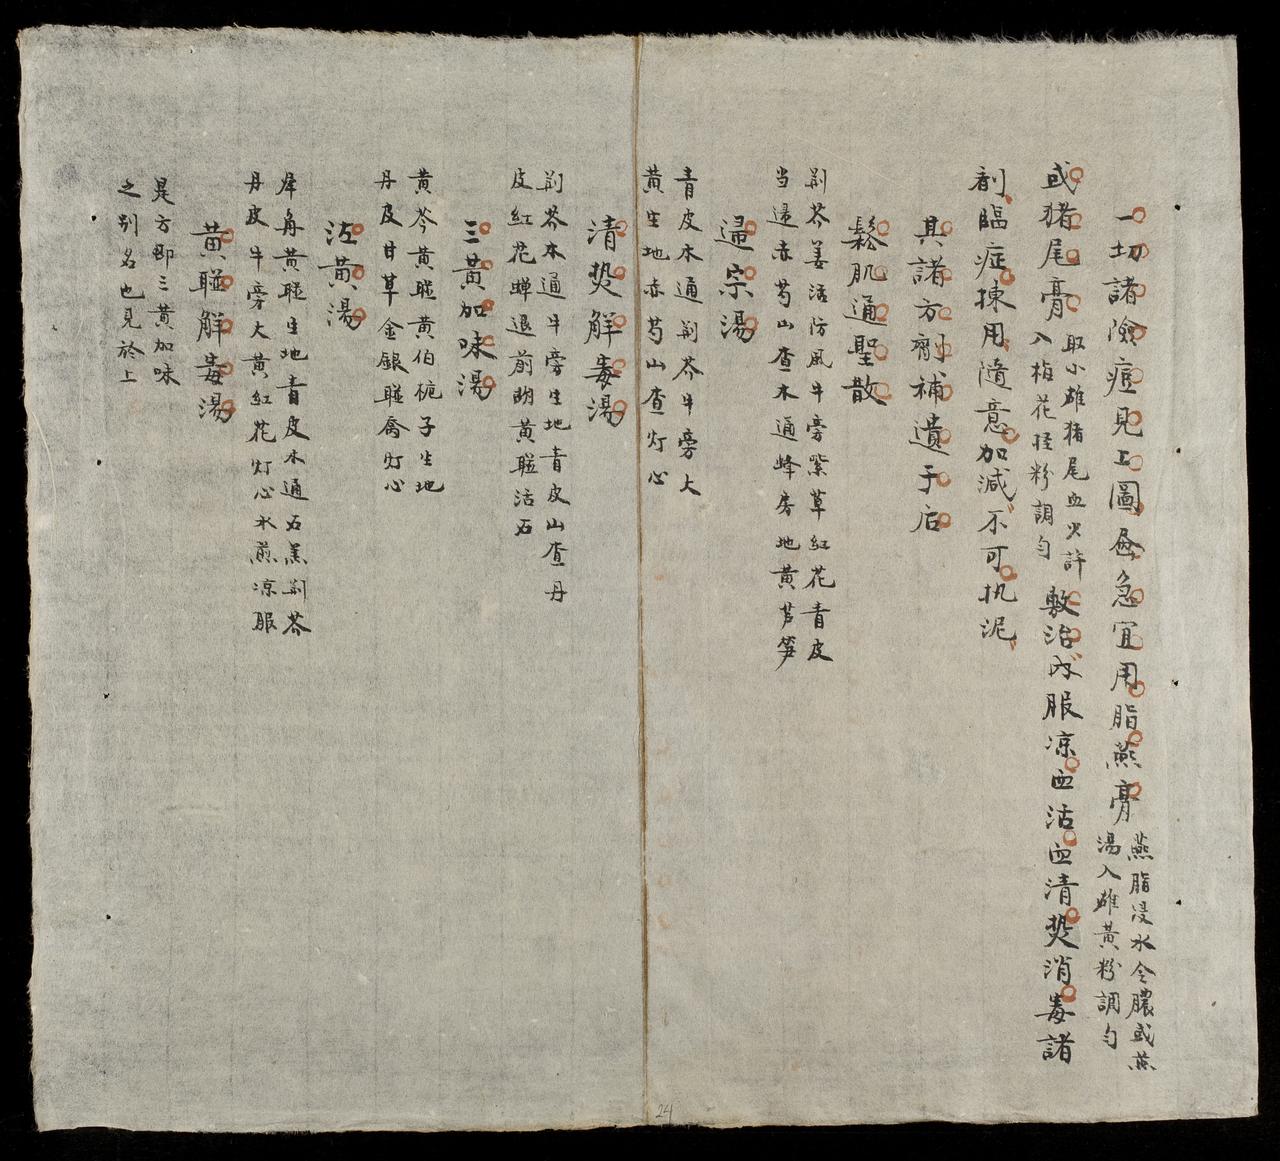 一切諸險痘見上圖每急宜用脂燕膏
燕脂浸水令膿或燕
湯入雄黃粉調勻
或猪尾膏
取小雄猪尾血火許
入梅花挃粉調勻
敷治內服凉血活血清焚消毒諸
剤臨症揀用隨意加減不可执泥
具諸方劑補遺于后
鬆肌通聖散
荊芥姜活防風牛旁紫草紅花青皮
当歸赤芍山查木通蜂房地黃芦笋
歸宗湯
青皮木通荊芥牛旁大
黃生地赤芍山查灯心
清焚解毒湯
荊芥木通牛旁生地青皮山查丹
皮紅花蟬退前胡黃聯活石
三黃加味湯
黃芩黃聯黃伯梔子生地
丹皮甘草金銀聯喬灯心
黃湯
黃聯生地青皮木通石羔荊芥
丹皮牛旁大黃紅花灯心水煎凉服
黃聯解毒湯
是方即三黃加味
之別名也見於上
24